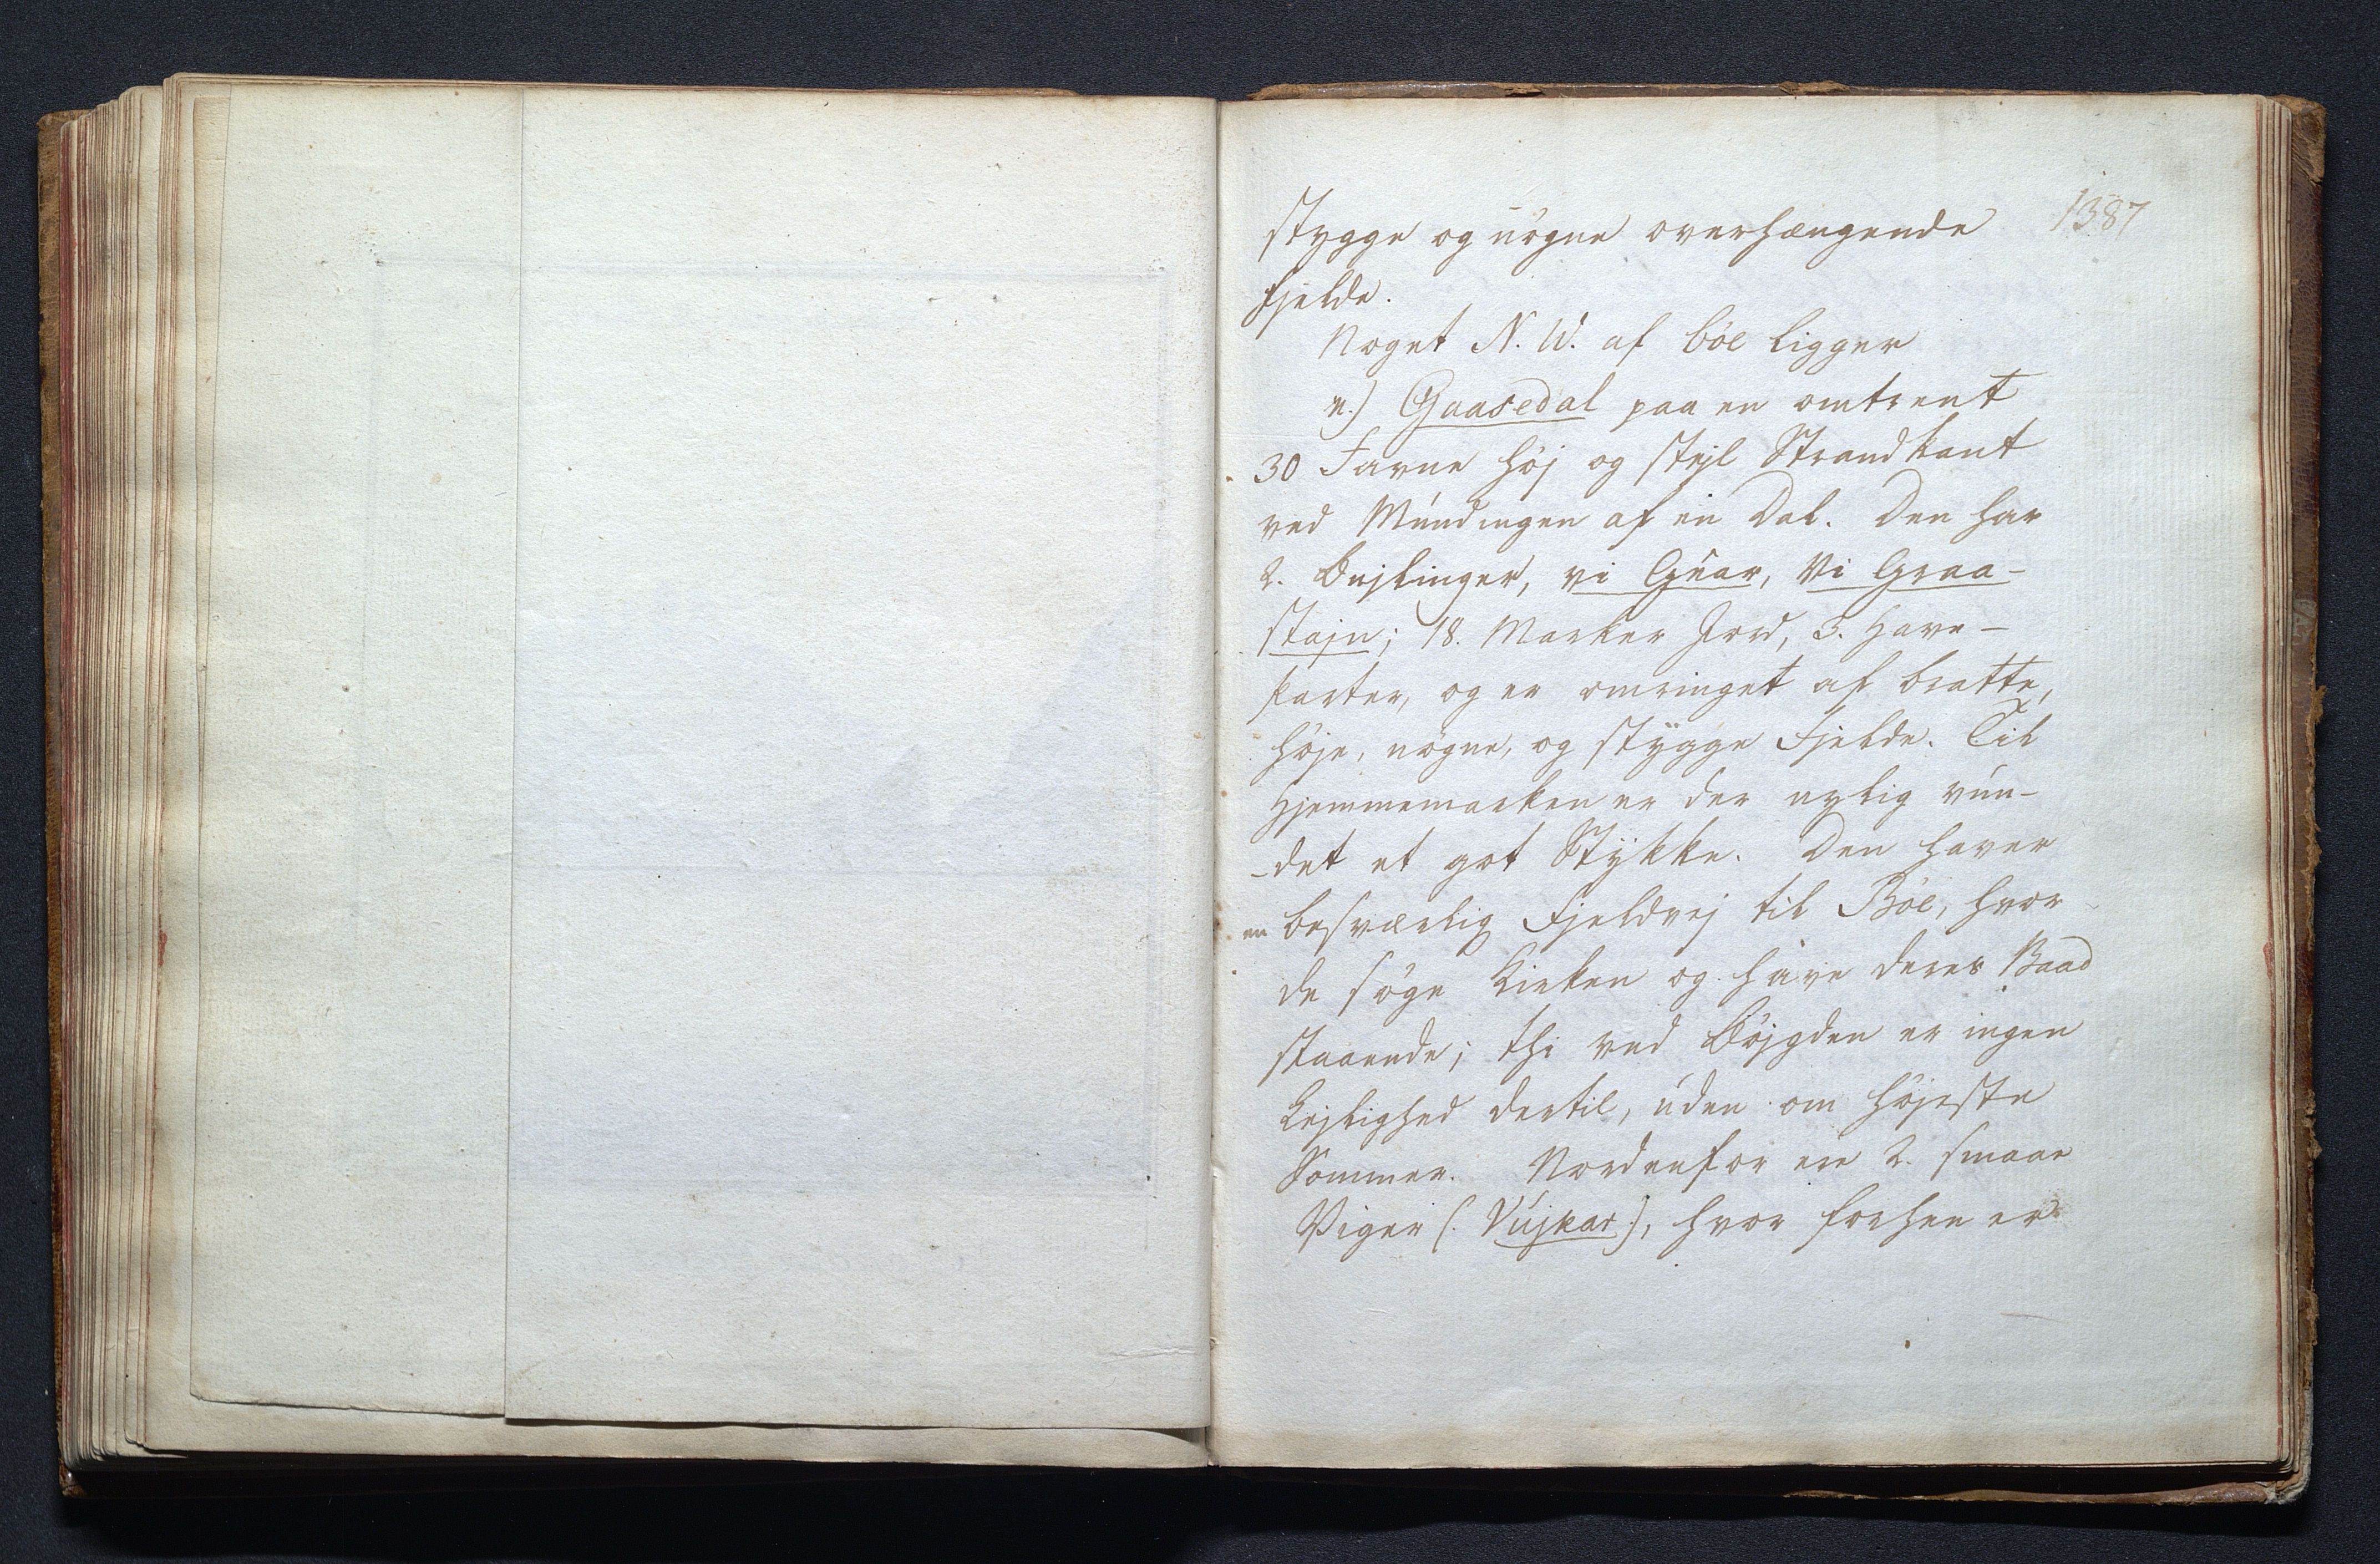 1387
stygge og nögne overhængende
Fjelde.
Noget N. W. af Böe ligger
n.) Gaasedal paa en omtrent
30 Favne höj og stejl Strandkant
ved Múndingen af en Dal. Den har
2. Bejlinger, vi Gúar, Vi Graa-
stajn; 18. Marker Jord, 3. Have-
parter, og er omringet af bratte,
höje, nögne, og stÿgge Fjelde. Til
Hjemmemarken er der nylig vún-
-det et got Stÿkke. Den haver
en besværlig Fjeldvej til Böe, hvor
de söge Kirken og have deres Baad
staaende; thi ved Böjgden er ingen
Lejlighed dertil, úden om höjeste
Sommer. Nordenfor ere 2. smaae
Viger (: Vújkar:), hvor forhen er